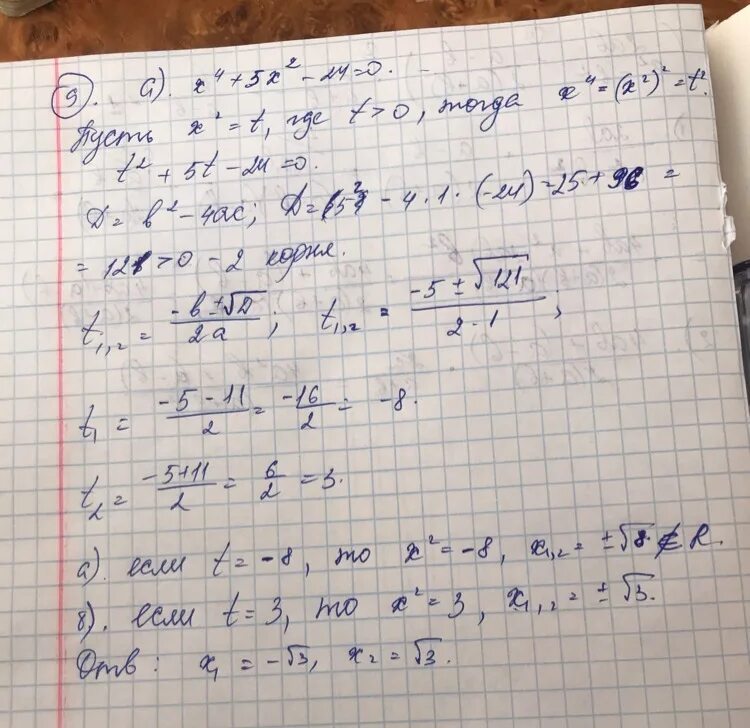 9). a). x⁴ + 5x² - 24 = 0.
Пусть x² = t, где t > 0, тогда x⁴ = (x²)² = t².
t² + 5t - 24 = 0.
D = b² - 4ac; D = (5)² - 4 · 1 · (-24) = 25 + 96 =
= 121 > 0 - 2 корня.
t₁,₂ = (-b ± √D)/(2a); t₁,₂ = (-5 ± √121)/(2 · 1);
t₁ = (-5 - 11)/2 = -16/2 = -8.
t₂ = (-5 + 11)/2 = 6/2 = 3.
а). если t = -8, то x² = -8, x₁,₂ = ±√8 ∉ R.
б). если t = 3, то x² = 3, x₁,₂ = ±√3.
Отв: x₁ = -√3, x₂ = √3.